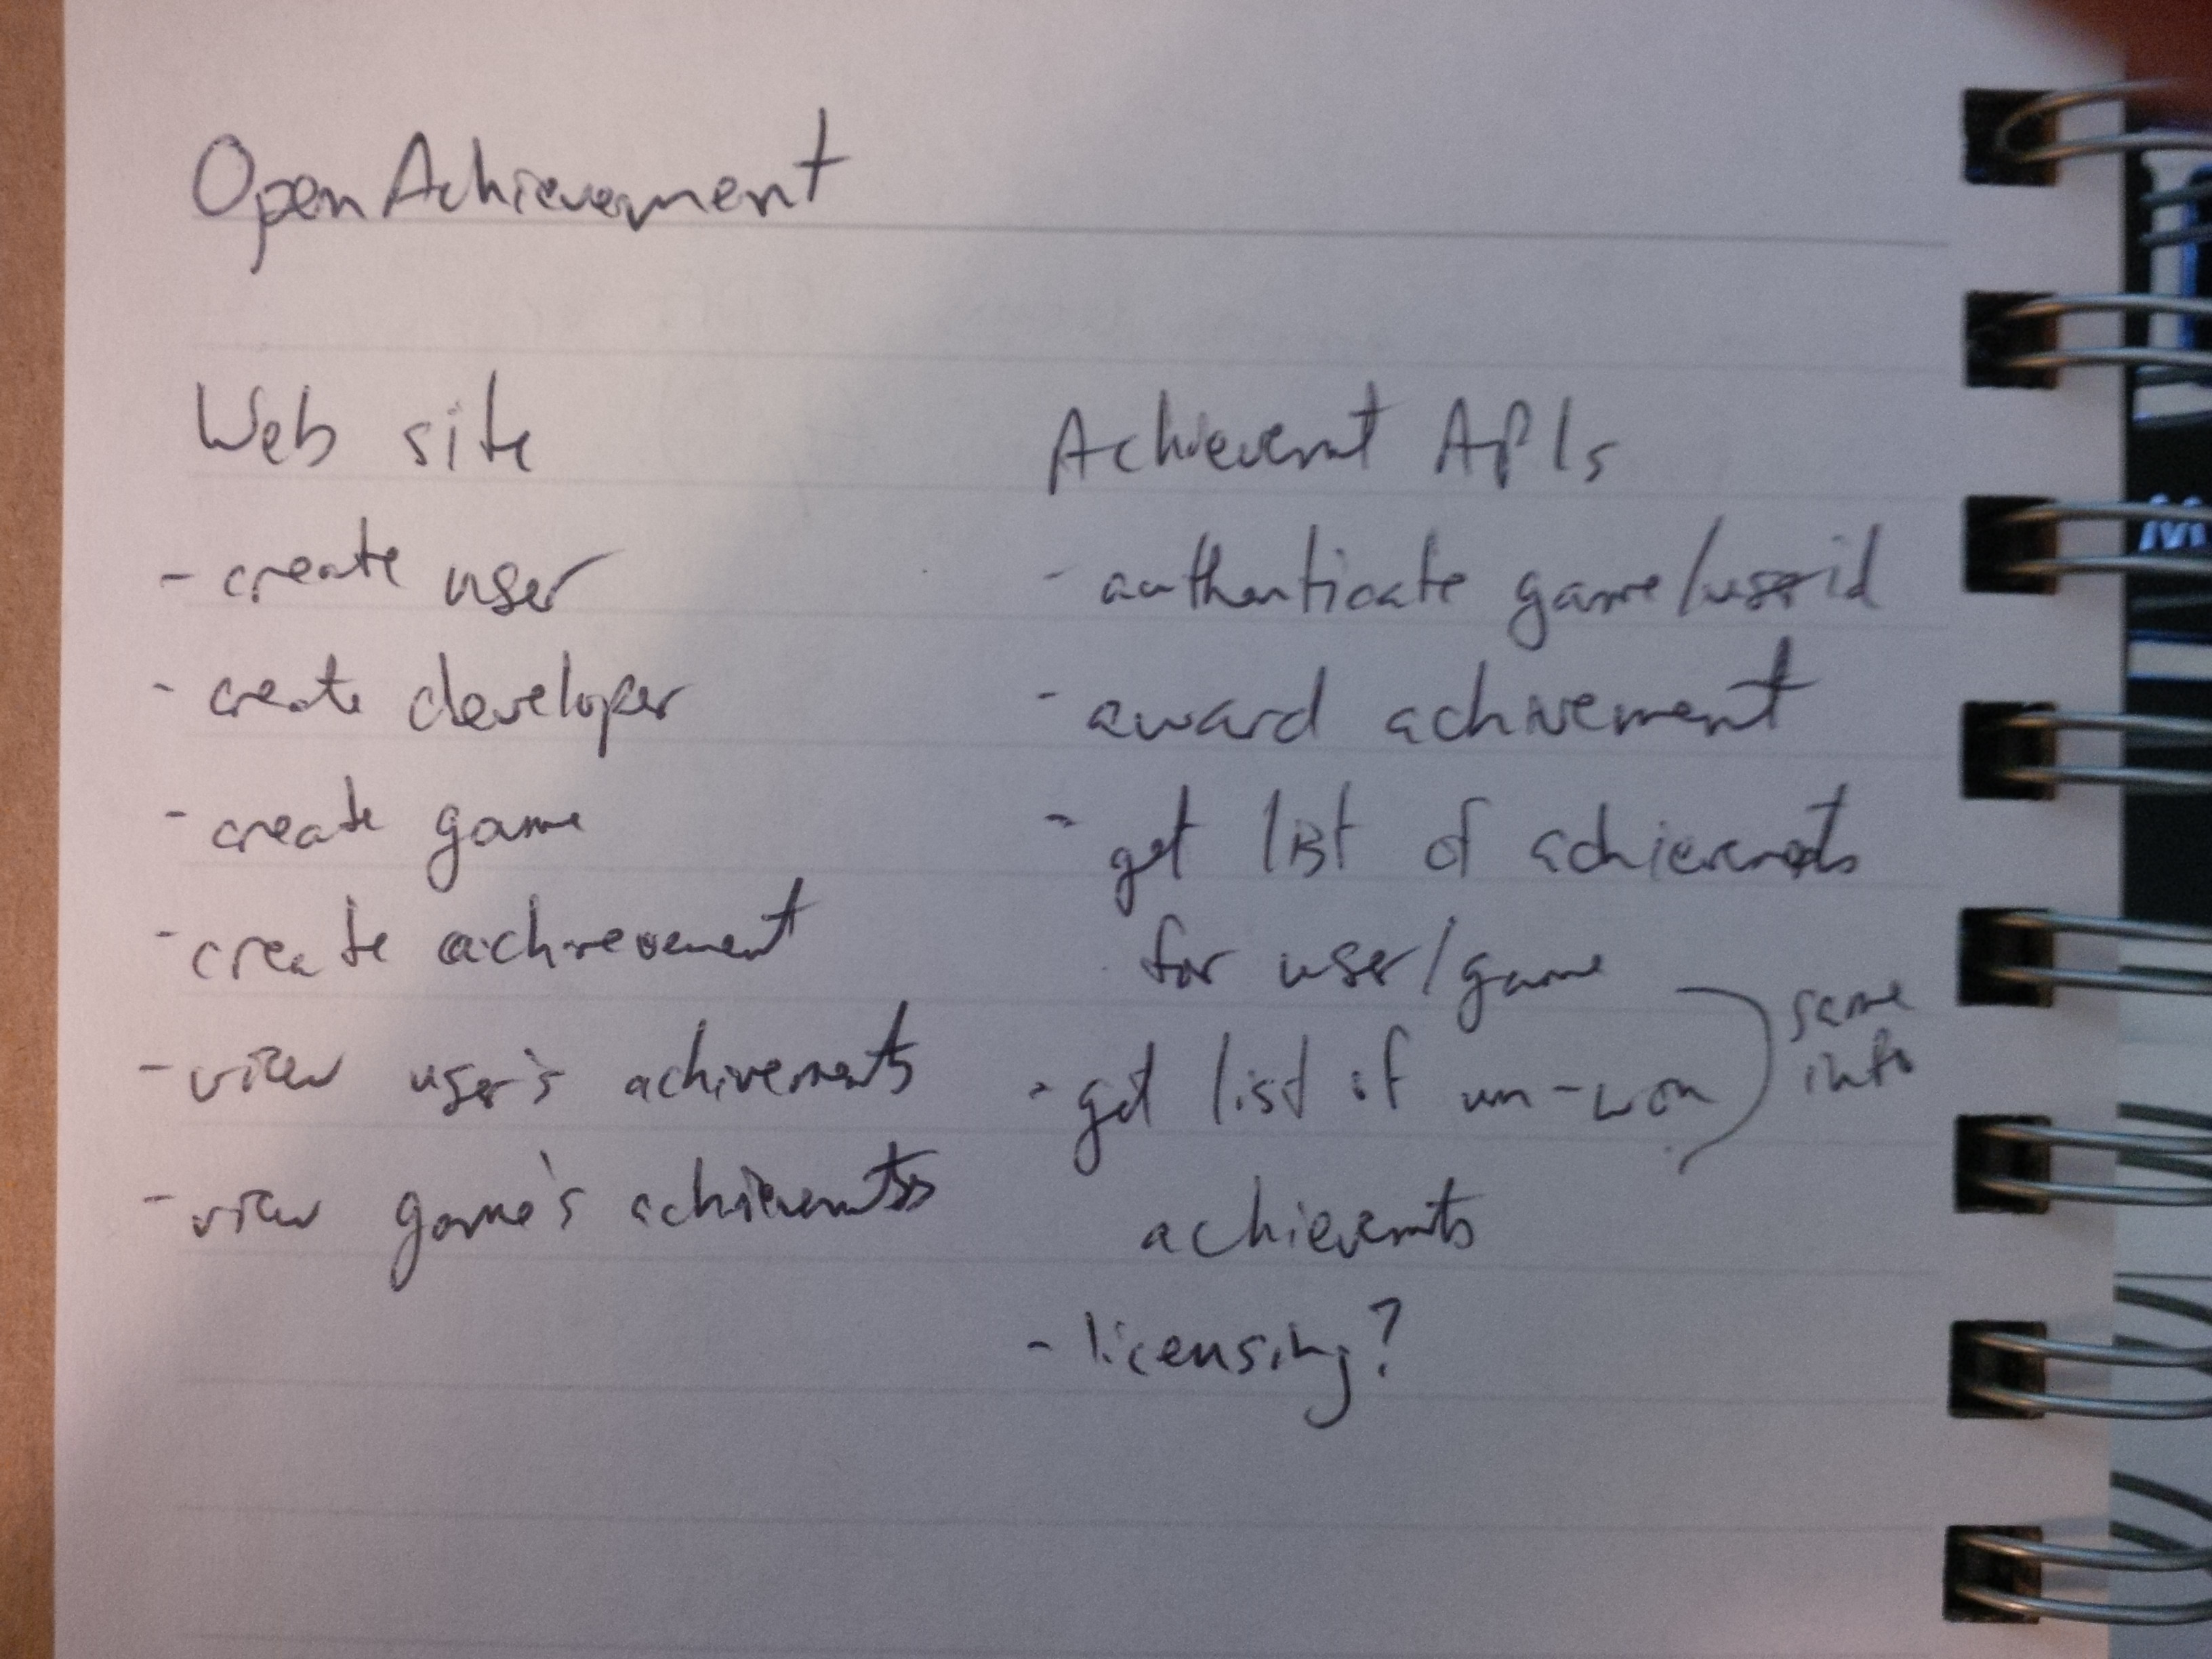 OpenAchievement
Web site
- create user
- create developer
- create game
- create achievement
- view user's achivements
- view game's achievemts
Achievemt APIs
- authenticate game/userid
- award achivement
- get list of achievements
for user/game
- get list of un-won
achievemts
- licensing?
same
info